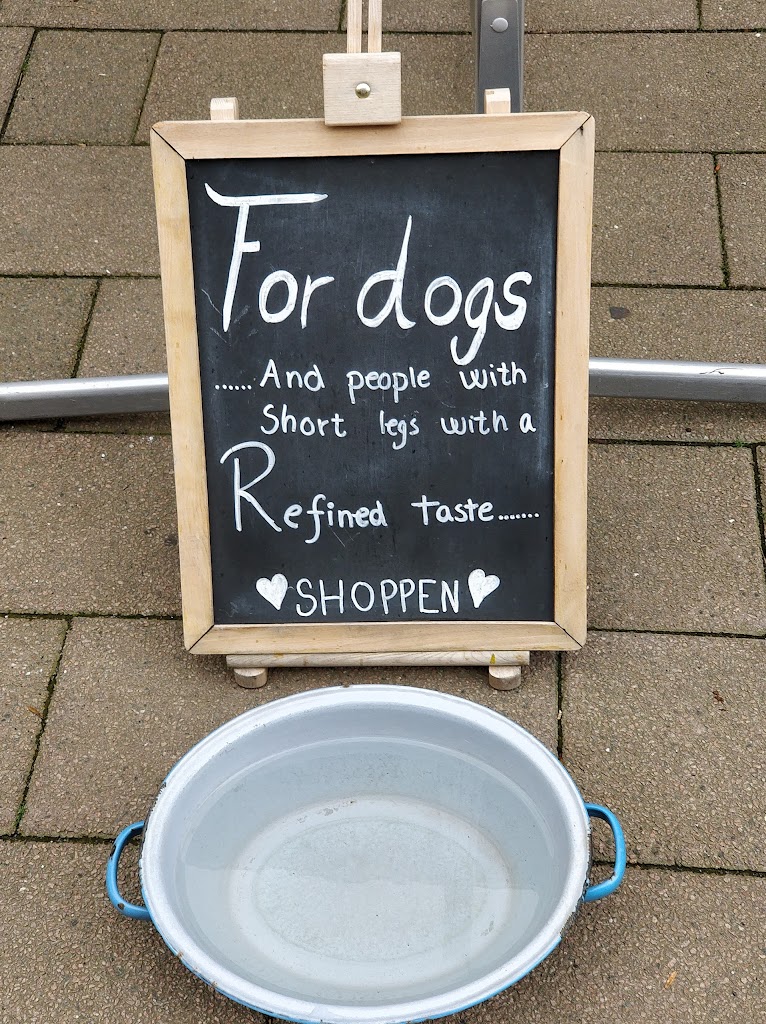 For dogs
......And people with
Short legs with a
Refined taste.......
♥SHOPPEN♥